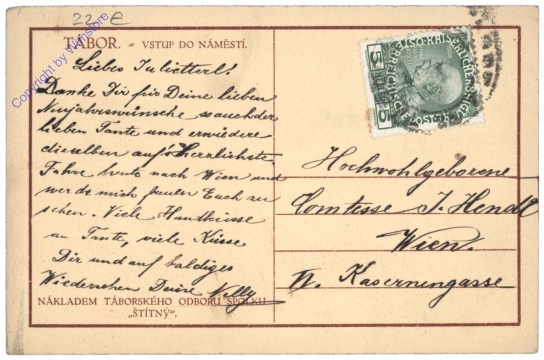 22 E
TÁBOR. - VSTUP DO NÁMĚSTÍ.
Liebes Julietterl!
Danke Dir für Deine lieben
Neujahrswünsche so auch der
lieben Tante und erwiedere
dieselben aufs Herzlichste.
Fahre heute nach Wien und
werde mich Euch zu
sehen. Viele Handküsse
an Tante, viele Küsse
Dir und auf baldiges
Wiedersehen Deine Nelly
NÁKLADEM TÁBORSKÉHO ODBORU SPOLKU
„ŠTÍTNÝ".
Hochwohlgeborene
Comtesse J. Hendl
Wien.
IV. Kasernengasse
5 5
Copyright by Wnstore